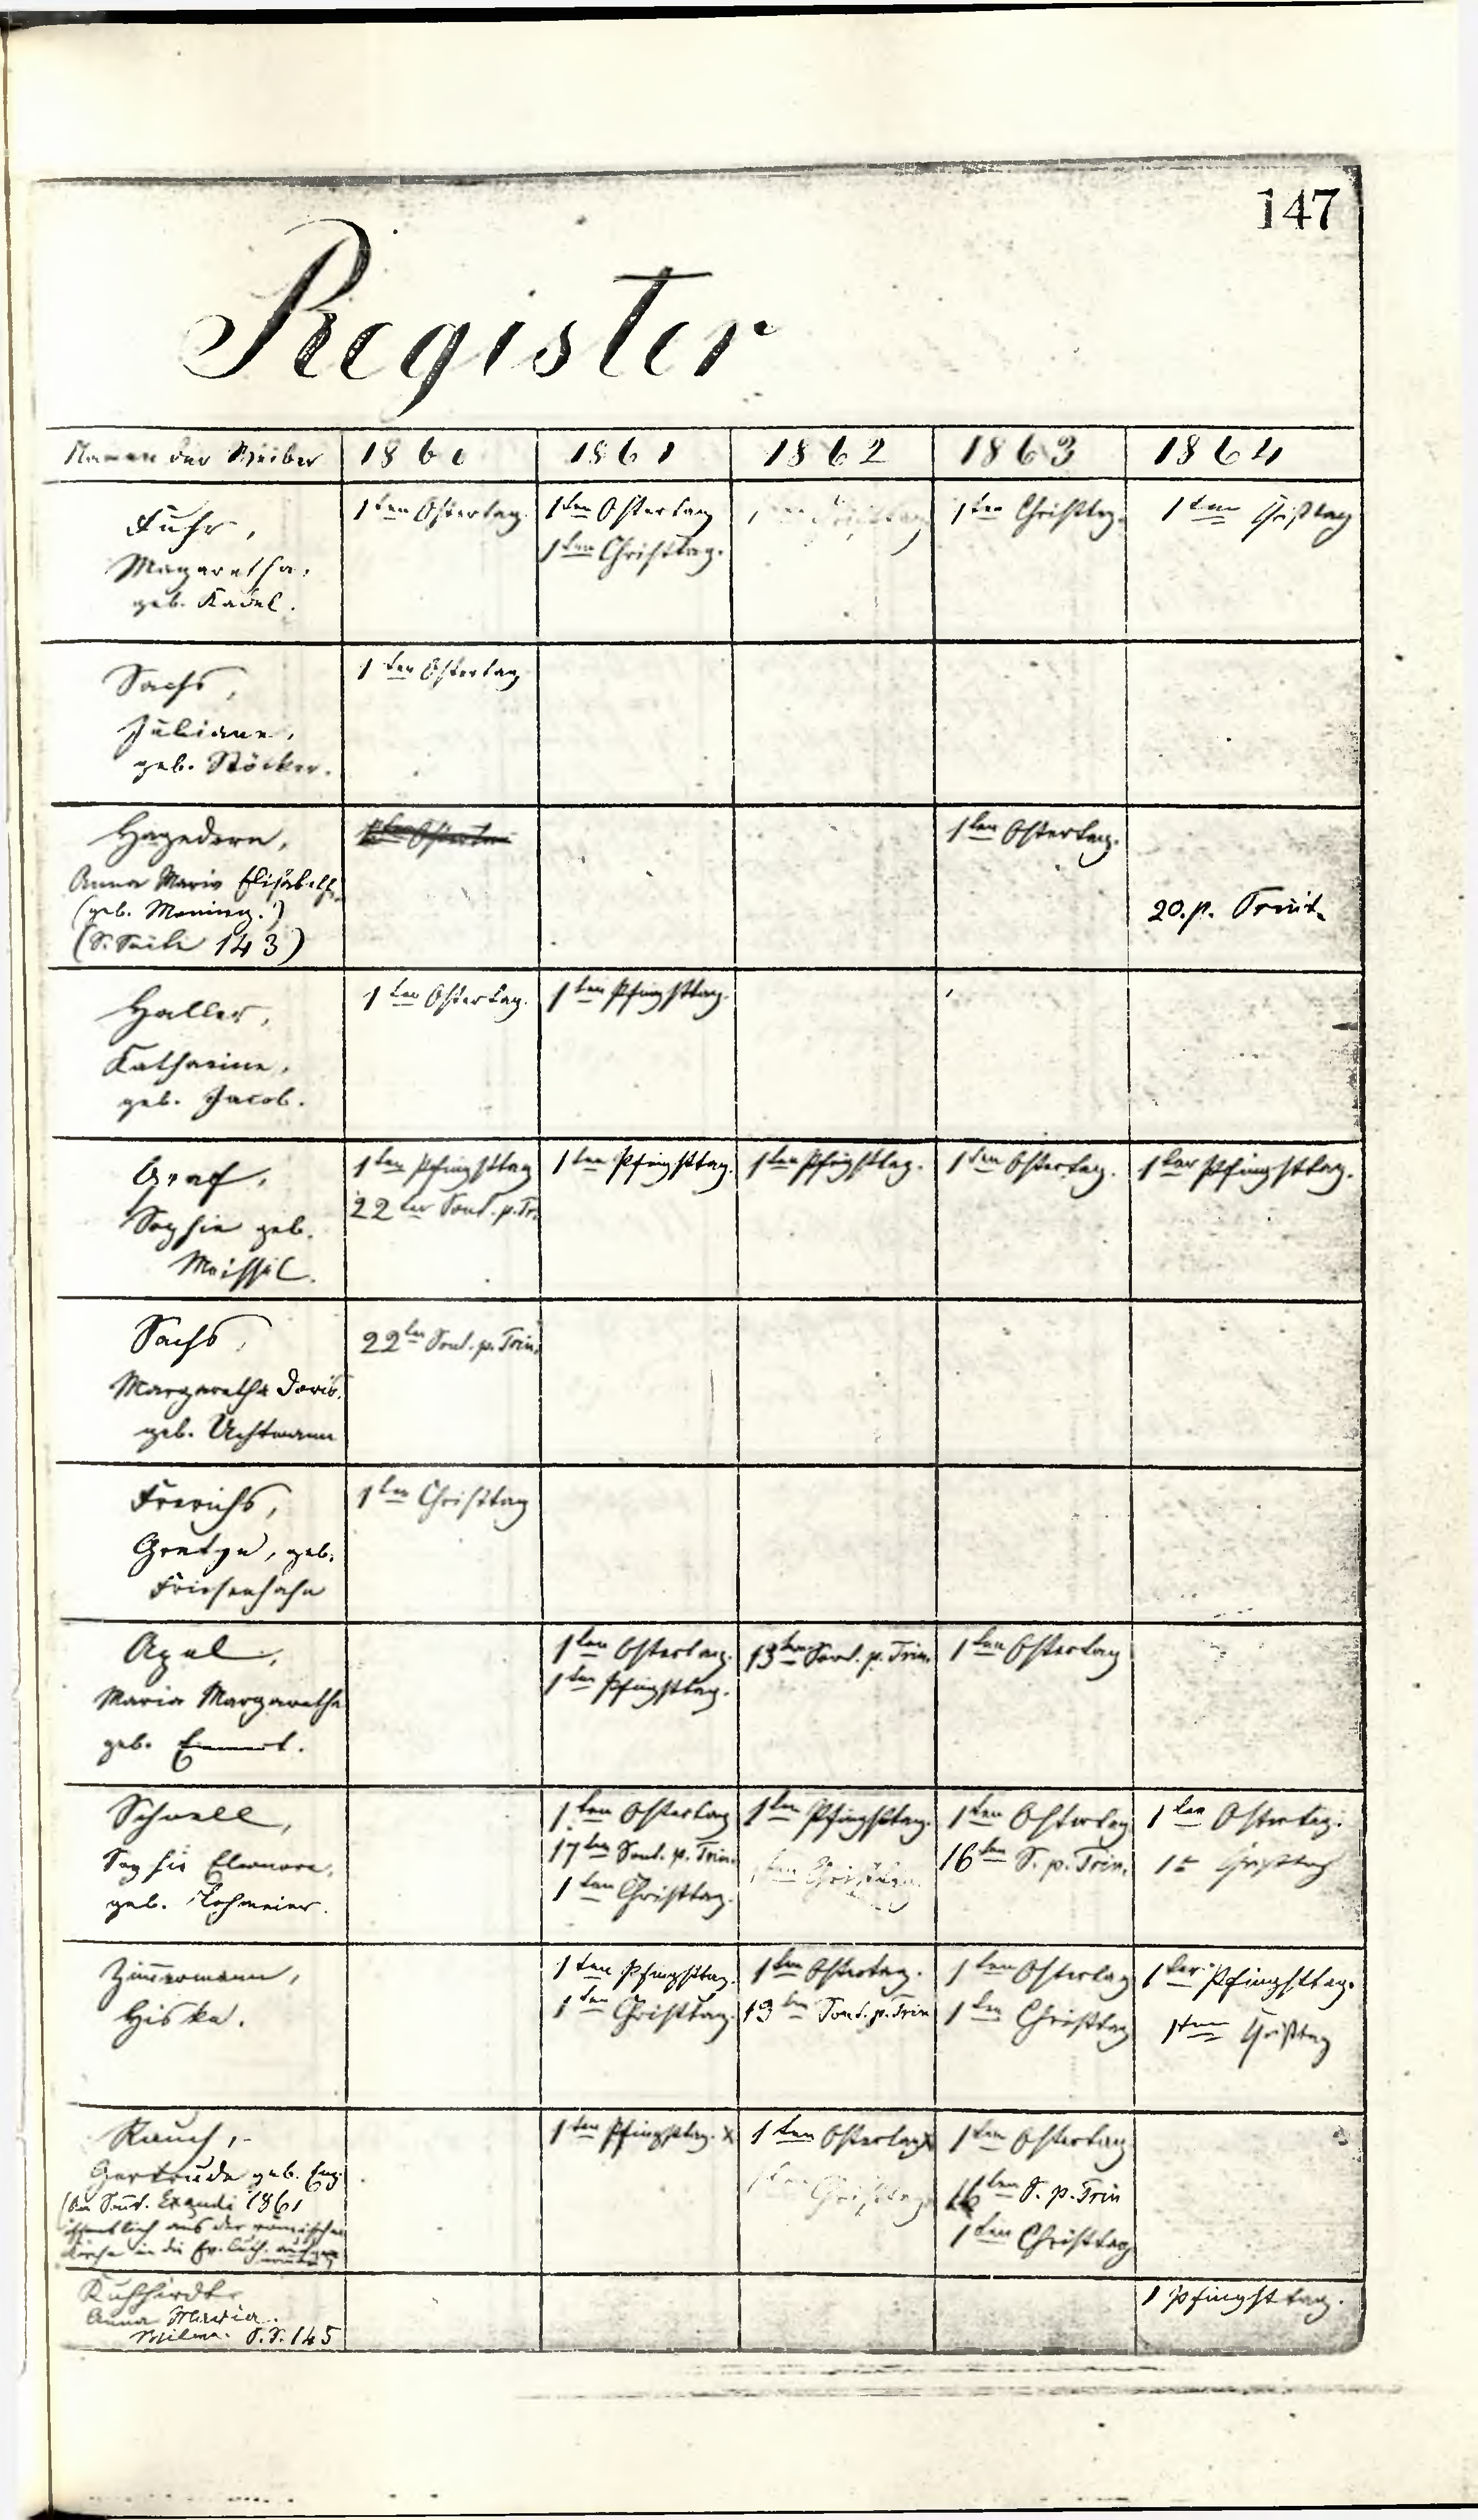 147
Register
Namen der Weiber 1860 1861 1862 1863 1864
Fuhr,
Magaretha,
geb. Kadel.
1ten Ostertag.
1ten Ostertag
1ten Christtag.
1ten Christtag
1ten Christtag.
1ten Christtag
Sachs,
Juliane,
geb. Stöcker.
1ten Ostertag
Hagedorn,
Anna Maria Elisabeth
(geb. Moning.)
(S. Seite 143)
1ten Ostertag
1ten Ostertag.
20. p. Trinit.
Haller,
Katharine,
geb. Jacob.
1ten Ostertag.
1ten Pfingsttag.
Graf,
Sophie geb.
Meissel.
1ten Pfingsttag
22ten Sont. p. Tr.
1ten Pfingsttag.
1ten Pfingsttag.
1ten Ostertag.
1ten Pfingsttag.
Sachs,
Margaretha Doris.
geb. Uchtmann
22ten Sont. p. Trin.
Frerichs,
Gretje, geb.
Friesenhahn
1ten Christtag
Apel,
Maria Margaretha
geb. Emmert.
1ten Ostertag.
1ten Pfingsttag.
13ten Sont. p. Trin.
1ten Ostertag
Schnell,
Sophie Eleonore,
geb. Lohmeier.
1ten Ostertag
17ten Sont. p. Trin.
1ten Christtag.
1ten Pfingsttag.
1ten Christtag.
1ten Ostertag
16ten S. p. Trin.
1ten Ostertag.
1t Christtag
Zimmermann,
Hiska.
1ten Pfingsttag.
1ten Christtag.
1ten Ostertag.
13ten Sont. p. Trin
1ten Ostertag
1ten Christtag
1ten Pfingsttag.
1ten Christtag
Rauch,
Gertrude geb. Eng.
(Am Sont. Exaudi 1861
öffentlich aus der römischen
Kirche in die Ev. Luth. aufge-
nommen)
1ten Pfingsttag. x
1ten Ostertag x
1ten Christtag
1ten Ostertag
16ten S. p. Trin
1ten Christtag
Kuhhirdt
Anna Maria
S. S. 145
1 Pfingsttag.